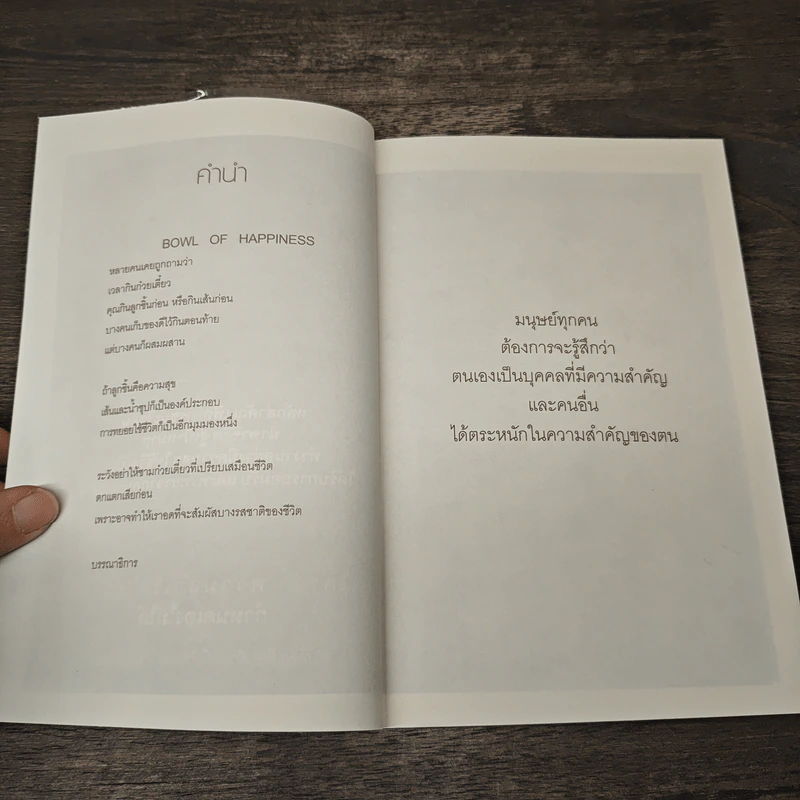 คำนำ
BOWL OF HAPPINESS
หลายคนเคยถูกถามว่า
เวลากินก๋วยเตี๋ยว
คุณกินลูกชิ้นก่อน หรือกินเส้นก่อน
บางคนเก็บของดีไว้กินตอนท้าย
แต่บางคนก็ผสมผสาน
ถ้าลูกชิ้นคือความสุข
เส้นและน้ำซุปก็เป็นองค์ประกอบ
การทยอยใช้ชีวิตก็เป็นอีกมุมมองหนึ่ง
ระวังอย่าให้ชามก๋วยเตี๋ยวที่เปรียบเสมือนชีวิต
ตกแตกเสียก่อน
เพราะอาจทำให้เราอดที่จะสัมผัสบางรสชาติของชีวิต
บรรณาธิการ
มนุษย์ทุกคน
ต้องการจะรู้สึกว่า
ตนเองเป็นบุคคลที่มีความสำคัญ
และคนอื่น
ได้ตระหนักในความสำคัญของตน